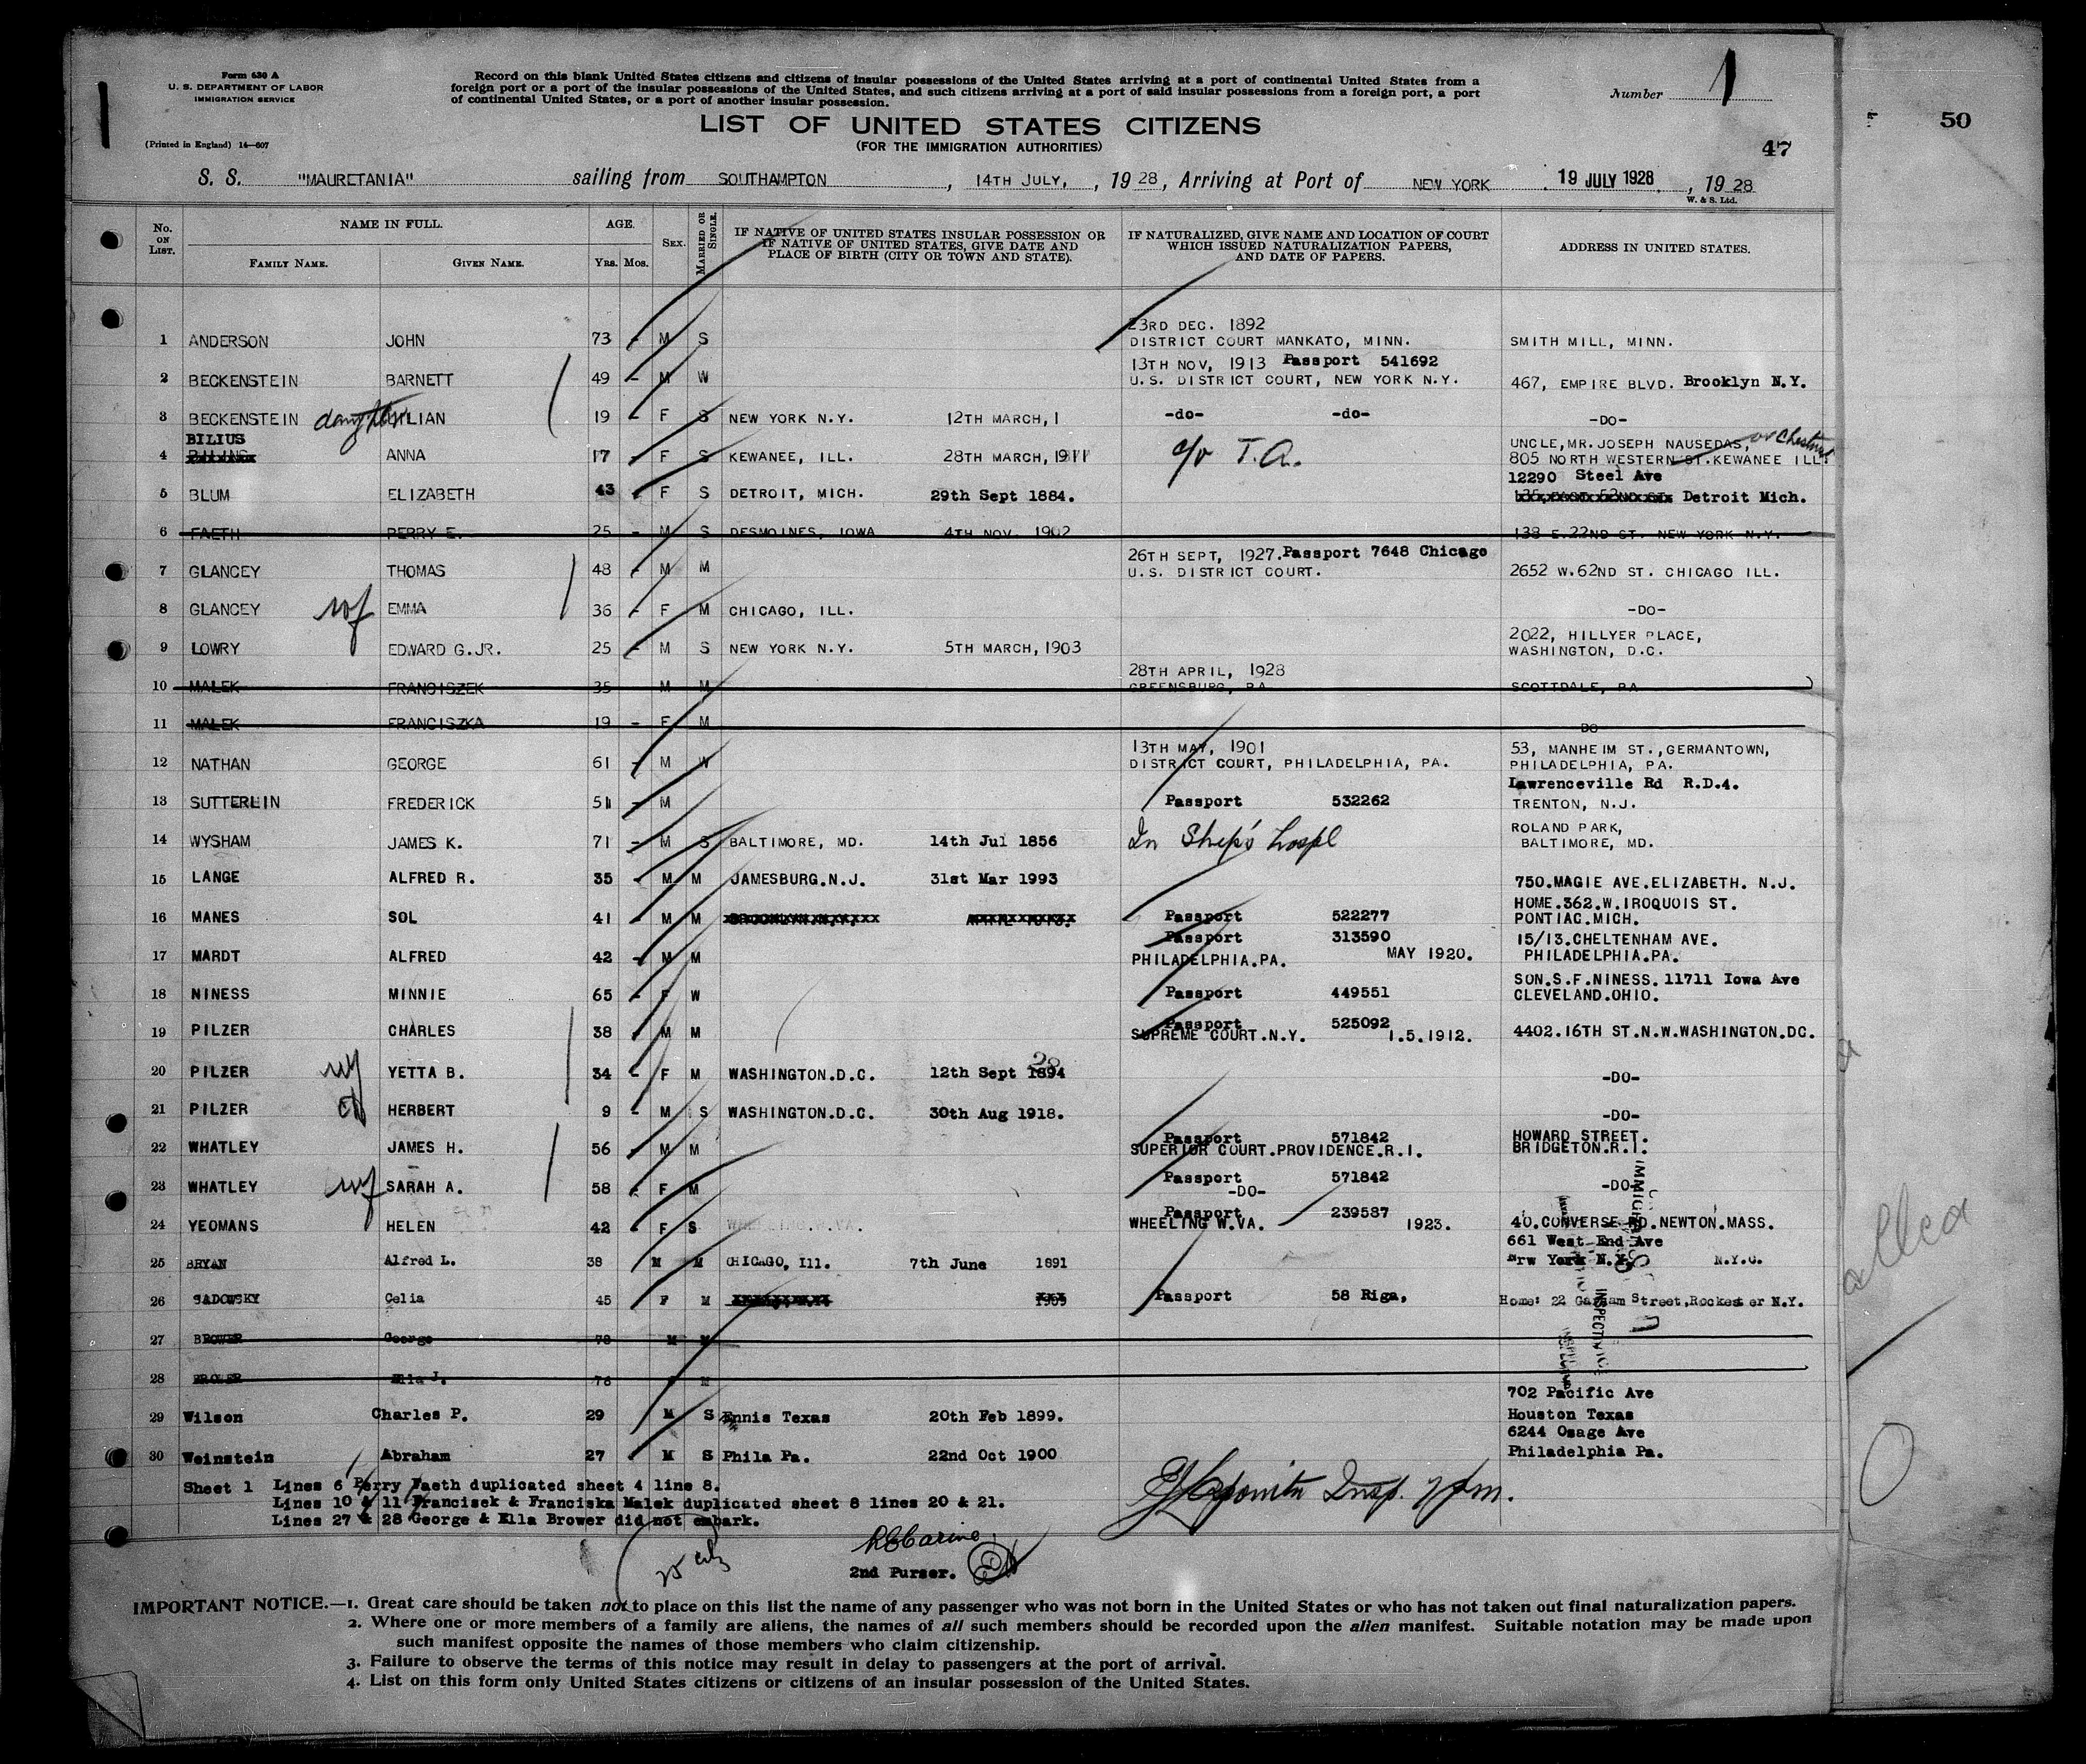 Form 630 A
U. S. DEPARTMENT OF LABOR
IMMIGRATION SERVICE
(Printed in England) 14—607
Record on this blank United States citizens and citizens of insular possessions of the United States arriving at a port of continental United States from a
foreign port or a port of the insular possessions of the United States, and such citizens arriving at a port of said insular possessions from a foreign port, a port
of continental United States, or a port of another insular possession.
Number 1
50
LIST OF UNITED STATES CITIZENS
(FOR THE IMMIGRATION AUTHORITIES)
47
S. S. "MAURETANIA" sailing from SOUTHAMPTON, 14TH JULY, , 19 28, Arriving at Port of NEW YORK 19 JULY 1928, 19 28
W. & S. Ltd.
No. ON LIST. NAME IN FULL. AGE. SEX. MARRIED OR SINGLE. IF NATIVE OF UNITED STATES INSULAR POSSESSION OR IF NATIVE OF UNITED STATES, GIVE DATE AND PLACE OF BIRTH (CITY OR TOWN AND STATE). IF NATURALIZED, GIVE NAME AND LOCATION OF COURT WHICH ISSUED NATURALIZATION PAPERS, AND DATE OF PAPERS. ADDRESS IN UNITED STATES.
FAMILY NAME. GIVEN NAME. YRS. MOS.
23RD DEC. 1892
1 ANDERSON JOHN 73 - M S DISTRICT COURT MANKATO, MINN. SMITH MILL, MINN.
13TH NOV, 1913 Passport 541692
2 BECKENSTEIN BARNETT 49 - M W U.S. DISTRICT COURT, NEW YORK N.Y. 467, EMPIRE BLVD. Brooklyn N.Y.
3 BECKENSTEIN daughter LILIAN 19 - F S NEW YORK N.Y. 12TH MARCH,1 -do- -do- -DO-
BILIUS UNCLE,MR.JOSEPH NAUSEDAS, or Chestnut
4 ANNA 17 - F S KEWANEE, ILL. 28TH MARCH,1911 c/o T.A. 805 NORTH WESTERN ST.KEWANEE ILL.
12290 Steel Ave
5 BLUM ELIZABETH 43 - F S DETROIT, MICH. 29th Sept 1884. Detroit Mich.
6 FAETH PERRY E. 25 - M S DESMOINES, IOWA 4TH NOV. 1902 138 E.22ND ST. NEW YORK N.Y.
26TH SEPT, 1927.Passport 7648 Chicago
7 GLANCEY THOMAS 48 - M M U.S. DISTRICT COURT. 2652 W.62ND ST. CHICAGO ILL.
8 GLANCEY wf EMMA 36 - F M CHICAGO, ILL. -DO-
2022, HILLYER PLACE,
9 LOWRY EDWARD G.JR. 25 - M S NEW YORK N.Y. 5TH MARCH,1903 WASHINGTON, D.C.
28TH APRIL, 1928
10 MALEK FRANCISZEK 35 M M GREENSBURG, PA SCOTTDALE, PA
11 MALEK FRANCISZKA 19 - F M DO
13TH MAY, 1901 53, MANHEIM ST.,GERMANTOWN,
12 NATHAN GEORGE 61 - M W DISTRICT COURT, PHILADELPHIA, PA. PHILADELPHIA, PA.
Lawrenceville Rd R.D.4.
13 SUTTERLIN FREDERICK 51 - M Passport 532262 TRENTON, N.J.
ROLAND PARK,
14 WYSHAM JAMES K. 71 - M S BALTIMORE, MD. 14th Jul 1856 In Ship's hospl BALTIMORE, MD.
15 LANGE ALFRED R. 35 - M M JAMESBURG.N.J. 31st Mar 1993 750.MAGIE AVE.ELIZABETH. N.J.
HOME.362.W.IROQUOIS ST.
16 MANES SOL 41 - M M Passport 522277 PONTIAC.MICH.
Passport 313590 15/13.CHELTENHAM AVE.
17 MARDT ALFRED 42 - M M PHILADELPHIA.PA. MAY 1920. PHILADELPHIA.PA.
SON.S.F.NINESS. 11711 Iowa Ave
18 NINESS MINNIE 65 - F W Passport 449551 CLEVELAND.OHIO.
Passport 525092
19 PILZER CHARLES 38 - M M SUPREME COURT.N.Y. 1.5.1912. 4402.16TH ST.N.W.WASHINGTON.DC.
20 PILZER wf YETTA B. 34 - F M WASHINGTON.D.C. 12th Sept 1894 -DO-
21 PILZER HERBERT 9 - M S WASHINGTON.D.C. 30th Aug 1918. -DO-
Passport 571842 HOWARD STREET.
22 WHATLEY JAMES H. 56 - M M SUPERIOR COURT.PROVIDENCE.R.I. BRIDGETON.R.I.
Passport 571842
23 WHATLEY wf SARAH A. 58 - F M -DO- -DO-
Passport 239587
24 YEOMANS HELEN 42 - F S WHEELING W.VA. 1923. 40.CONVERSE RD.NEWTON.MASS.
661 West End Ave
25 BRYAN Alfred L. 38 M M CHICAGO, Ill. 7th June 1891 New York N.Y. N.Y.C.
26 SADOWSKY Celia 45 F M 1909 Passport 58 Riga, Home: 22 Street,Rochester N.Y.
27 BROWER George 78 M M
28 BROWER Ella J. 76 M
702 Pacific Ave
29 Wilson Charles P. 29 M S Ennis Texas 20th Feb 1899. Houston Texas
6244 Osage Ave
30 Weinstein Abraham 27 M S Phila Pa. 22nd Oct 1900 Philadelphia Pa.
Sheet 1 Lines 6 Perry Faeth duplicated sheet 4 line 8.
Lines 10 & 11 Francisek & Franciska Malek duplicated sheet 8 lines 20 & 21.
Lines 27 & 28 George & Ella Brower did not embark.
2nd Purser.
IMPORTANT NOTICE.—1. Great care should be taken not to place on this list the name of any passenger who was not born in the United States or who has not taken out final naturalization papers.
2. Where one or more members of a family are aliens, the names of all such members should be recorded upon the alien manifest. Suitable notation may be made upon
such manifest opposite the names of those members who claim citizenship.
3. Failure to observe the terms of this notice may result in delay to passengers at the port of arrival.
4. List on this form only United States citizens or citizens of an insular possession of the United States.